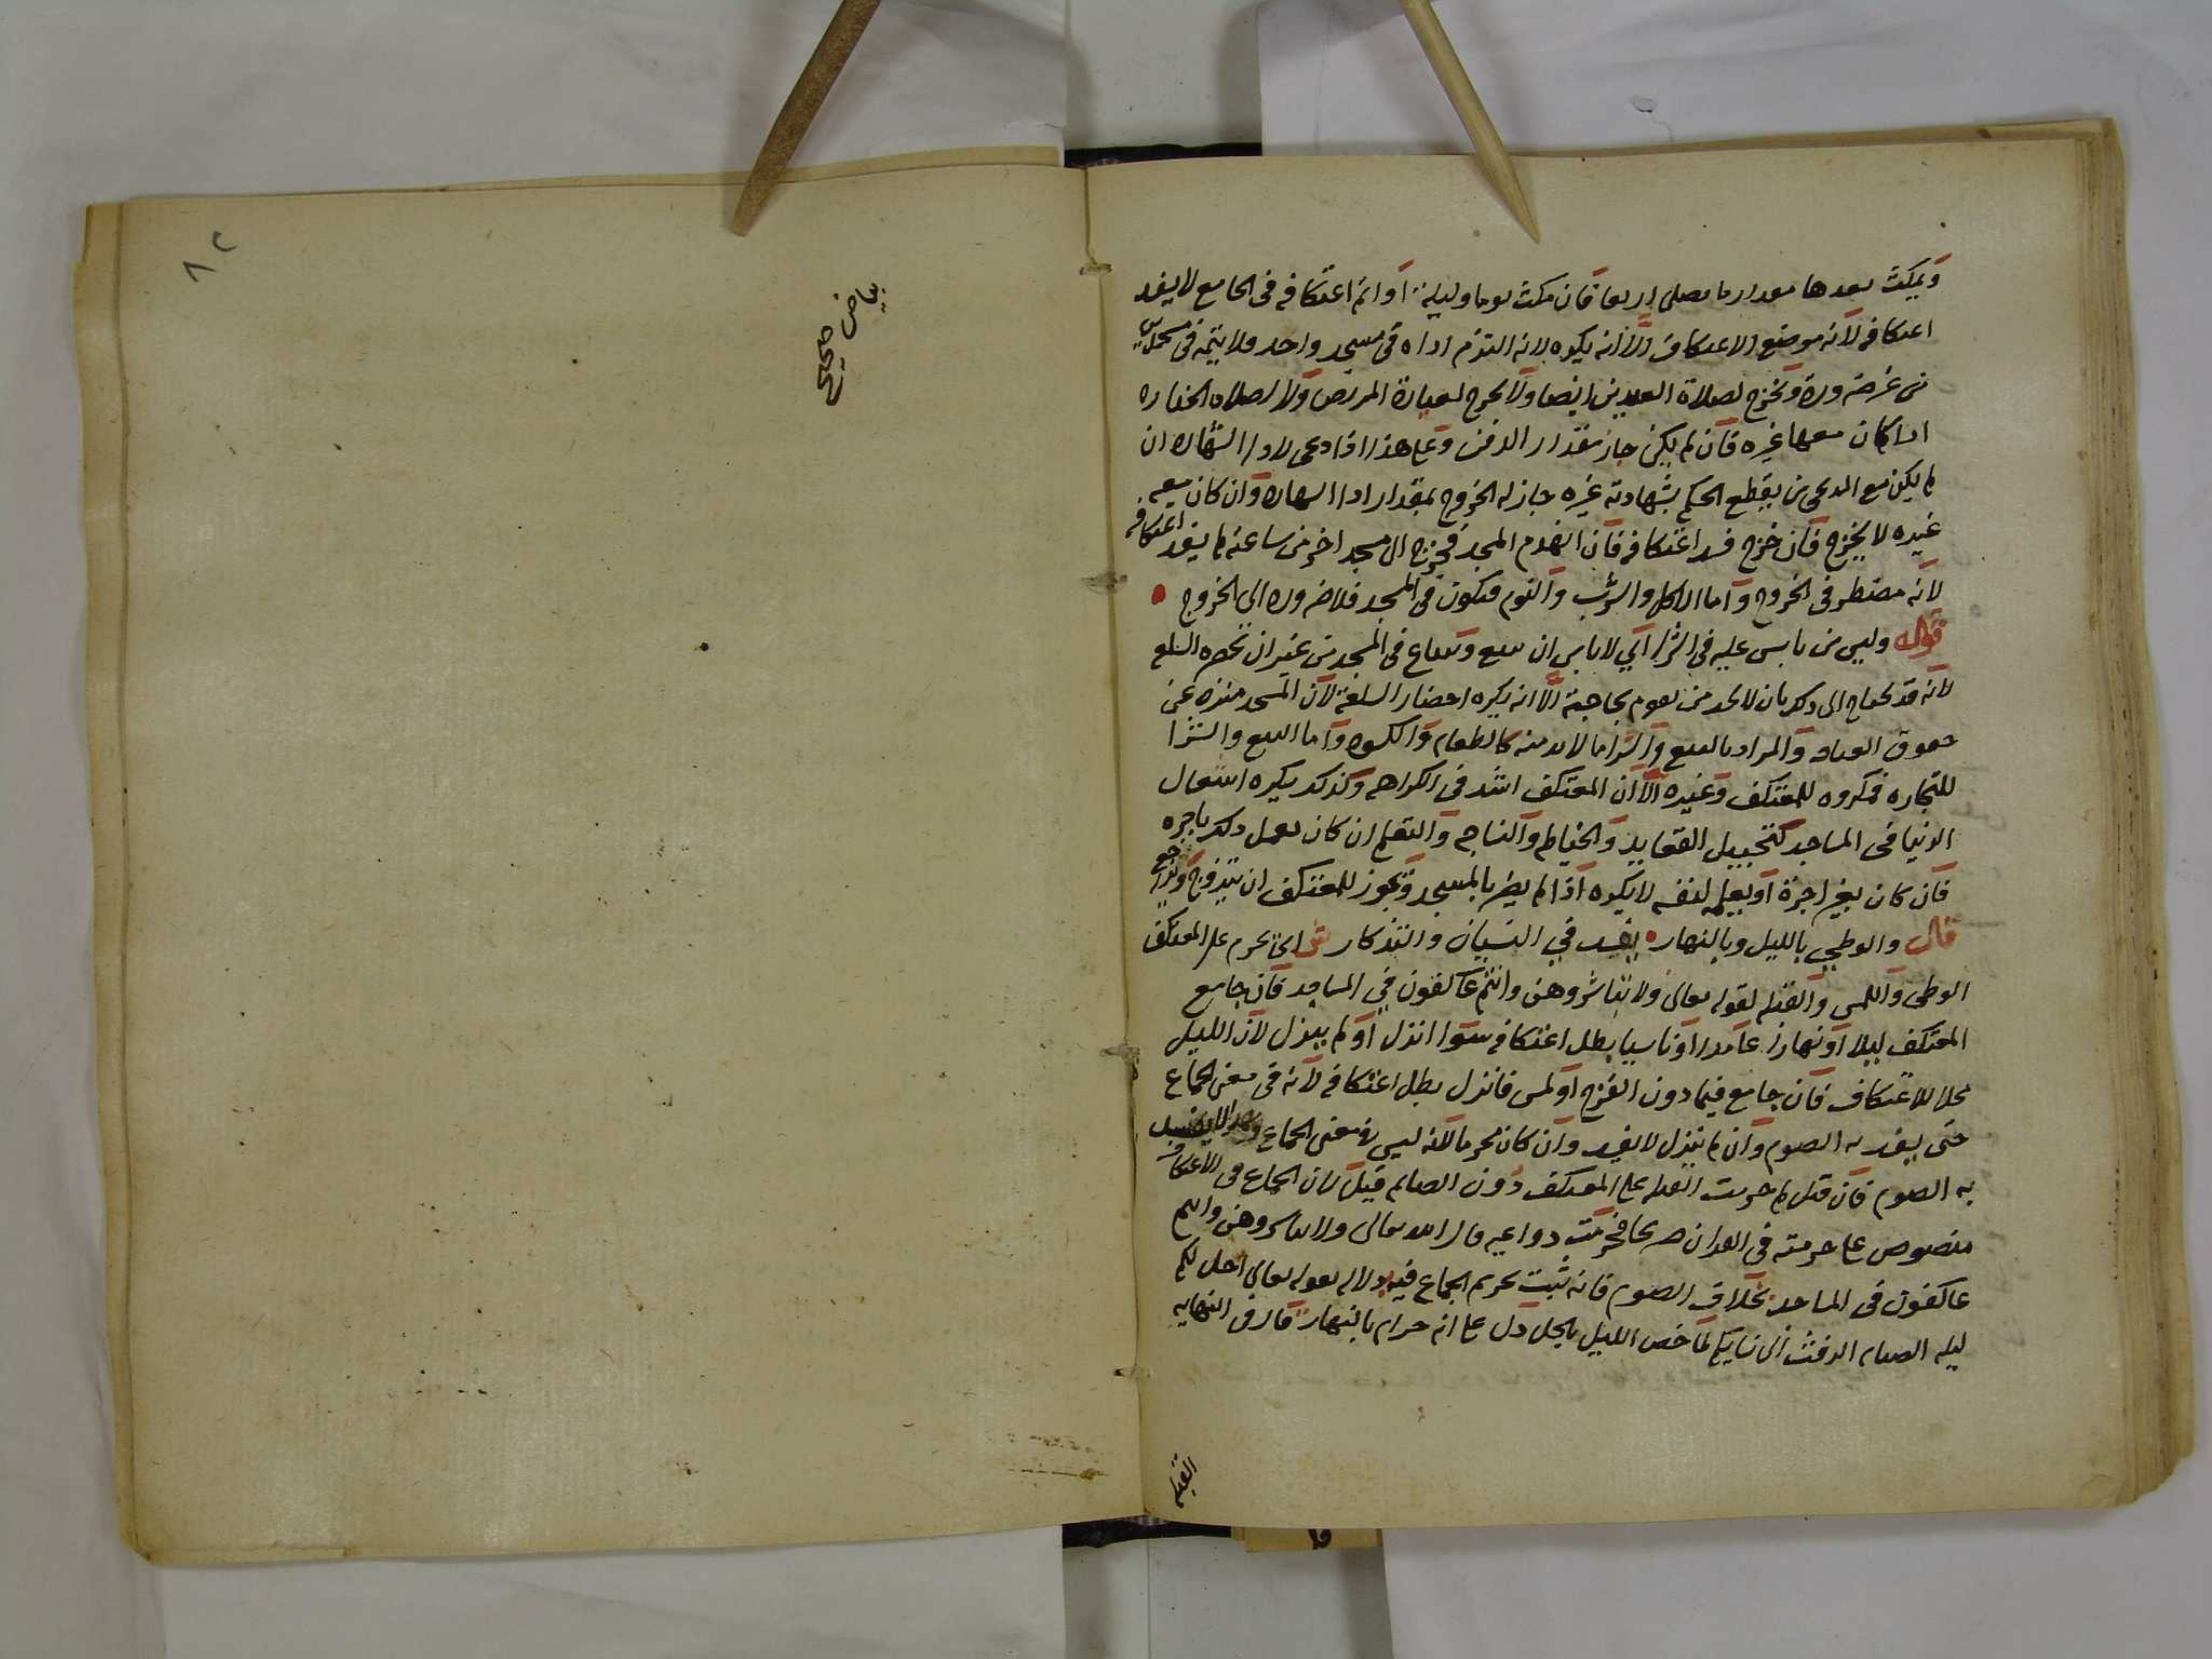 ويمكث بعدها مقدار ما يصلي اربعا فان مكث يوما وليلة او اتم اعتكافه في الجامع لا يفسد
اعتكافه لانه موضع الاعتكاف الا انه يكره لانه التزم اداه في مسجد واحد فلا يتمه في مسجدين
من غير ضرورة ويخرج لصلاة العيدين ايضا ولا يخرج لعيادة المريض ولا لصلاه الجنازه
اذا كان معها غيره فان لم يكن جاز مقدار الدفن وعلى هذا اذا دعي لادا الشهاده ان
لم يكن مع المدعي من يقطع الحكم بشهادته غيره جاز له الخروج بمقدار ادا الشهاده وان كان معه
غيره لا يخرج فان خرج فسد اعتكافه فان انهدم المسجد فخرج الى مسجد اخر من ساعته لم يفسد اعتكافه
لانه مضطر في الخروج واما الاكل والشرب والنوم فيكون في المسجد فلا ضروره الى الخروج
قوله وليس من باس عليه في الشرا اي لا باس ان يبيع ويبتاع في المسجد من غير ان يحضره السلع
لانه قد يحتاج الى ذلك بان لا يجد من يقوم بحاجته الا انه يكره احضار السلعة لان المسجد منزه عن
حقوق العباد والمراد بالبيع والشرا ما لا بد منه كالطعام والكسوه واما البيع والشرا
للتجاره فمكروه للمعتكف وغيره الا ان المعتكف اشد في الكراهه وكذلك يكره اشغال
الدنيا في المساجد كتحبيل القعايد والخياطه والنساجه والتعليم ان كان يعمل ذلك باجره
فان كان بغير اجرة او يعمله لنفسه لا يكره اذا لم يضر بالمسجد ويجوز للمعتكف ان يتزوج ويراجع
قال والوطي بالليل وبالنهار يفسد في النسيان والتذكار ش اي يحرم على المعتكف
الوطي واللمس والقبله لقوله تعالى ولا تباشروهن وانتم عاكفون في المساجد فان جامع
المعتكف ليلا او نهارا عامدا او ناسيا بطل اعتكافه سوا انزل او لم ينزل لان الليل
محلا للاعتكاف فان جامع فيما دون الفرج او لمس فانزل بطل اعتكافه لانه في معنى الجماع
حتى يفسد به الصوم وان لم ينزل لا يفسد وان كان محرما لانه ليس في معنى الجماع ولهذا لا يفسد
به الصوم فان قيل لم حرمت القبله على المعتكف دون الصايم قيل لان الجماع في الاعتكاف
منصوص على حرمته في القران صريحا فحرمت دواعيه قال الله تعالى ولا تباشروهن وانتم
عاكفون في المساجد بخلاف الصوم فانه ثبت تحريم الجماع فيه دلاله بقوله تعالى احل لكم
ليله الصيام الرفث الى نسايكم لما خص الليل بالحل دل على انه حرام بالنهار قال في النهايه
القبله
بياض صحيح
٨٢